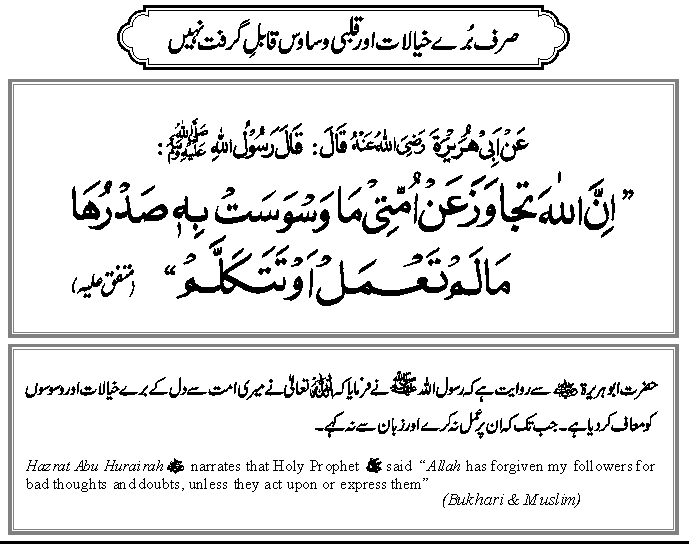 صرف بُرے خیالات اور قلبی وساوس قابلِ گرفت نہیں
عَنْ اَبِیْ هُرَیْرَةَ رَضِیَ اللهُ عَنْهُ قَالَ: قَالَ رَسُوْلُ اللهِ ﷺ:
”اِنَّ اللهَ تَجَاوَزَ عَنْ اُمَّتِیْ مَا وَسْوَسَتْ بِهٖ صَدْرُهَا
مَا لَمْ تَعْمَلْ اَوْ تَتَكَلَّمْ“ (متفق علیہ)
حضرت ابوہریرۃ ؓ سے روایت ہے کہ رسول اللہ ﷺ نے فرمایا کہ اللہ تعالیٰ نے میری امت سے دل کے برے خیالات اور وسوسوں
کو معاف کر دیا ہے۔ جب تک کہ ان پر عمل نہ کرے اور زبان سے نہ کہے۔
Hazrat Abu Hurairah ؓ narrates that Holy Prophet ﷺ said “Allah has forgiven my followers for
bad thoughts and doubts, unless they act upon or express them”
(Bukhari & Muslim)